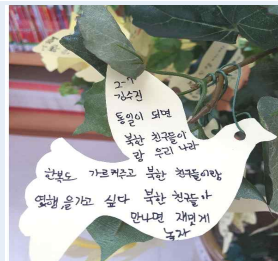 2-4
김수진
통일이 되면
북한 친구들이
랑 우리 나라
한복도 가르켜주고 북한 친구들이랑
여행을 가고 싶다 북한 친구들아
만나면 재밌게
놀자